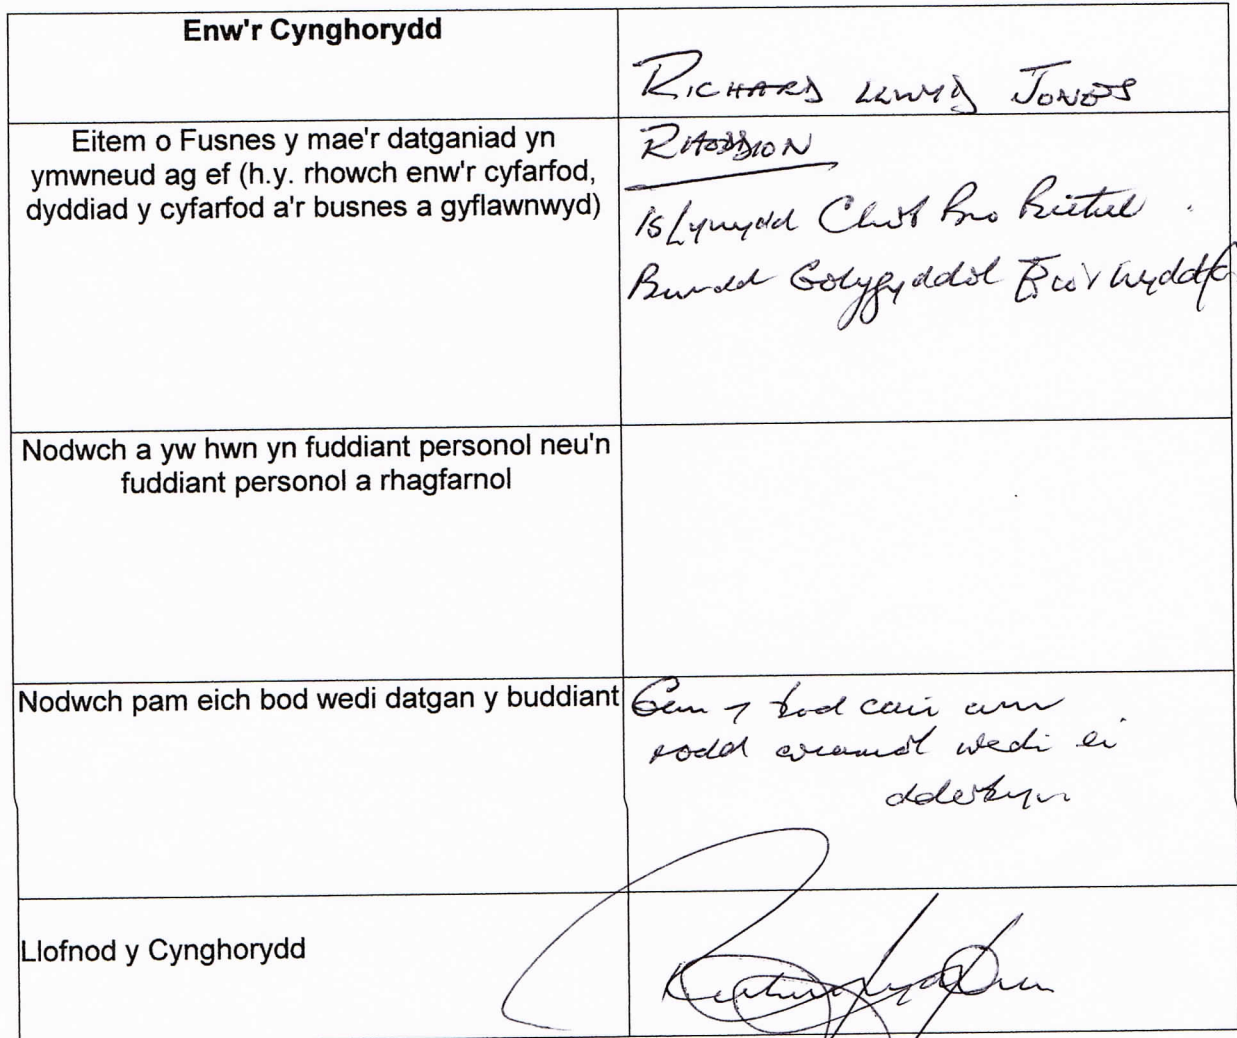 Enw'r Cynghorydd
RICHARD LLWYD JONES
Eitem o Fusnes y mae'r datganiad yn
ymwneud ag ef (h.y. rhowch enw'r cyfarfod,
dyddiad y cyfarfod a'r busnes a gyflawnwyd)
RHODDION
Is Lywydd Clwb Bro
Bwrdd Golygyddol Eco'r Wyddfa
Nodwch a yw hwn yn fuddiant personol neu'n
fuddiant personol a rhagfarnol
Nodwch pam eich bod wedi datgan y buddiant
Gan y bod cais am
rodd ariannol wedi ei
dderbyn
Llofnod y Cynghorydd